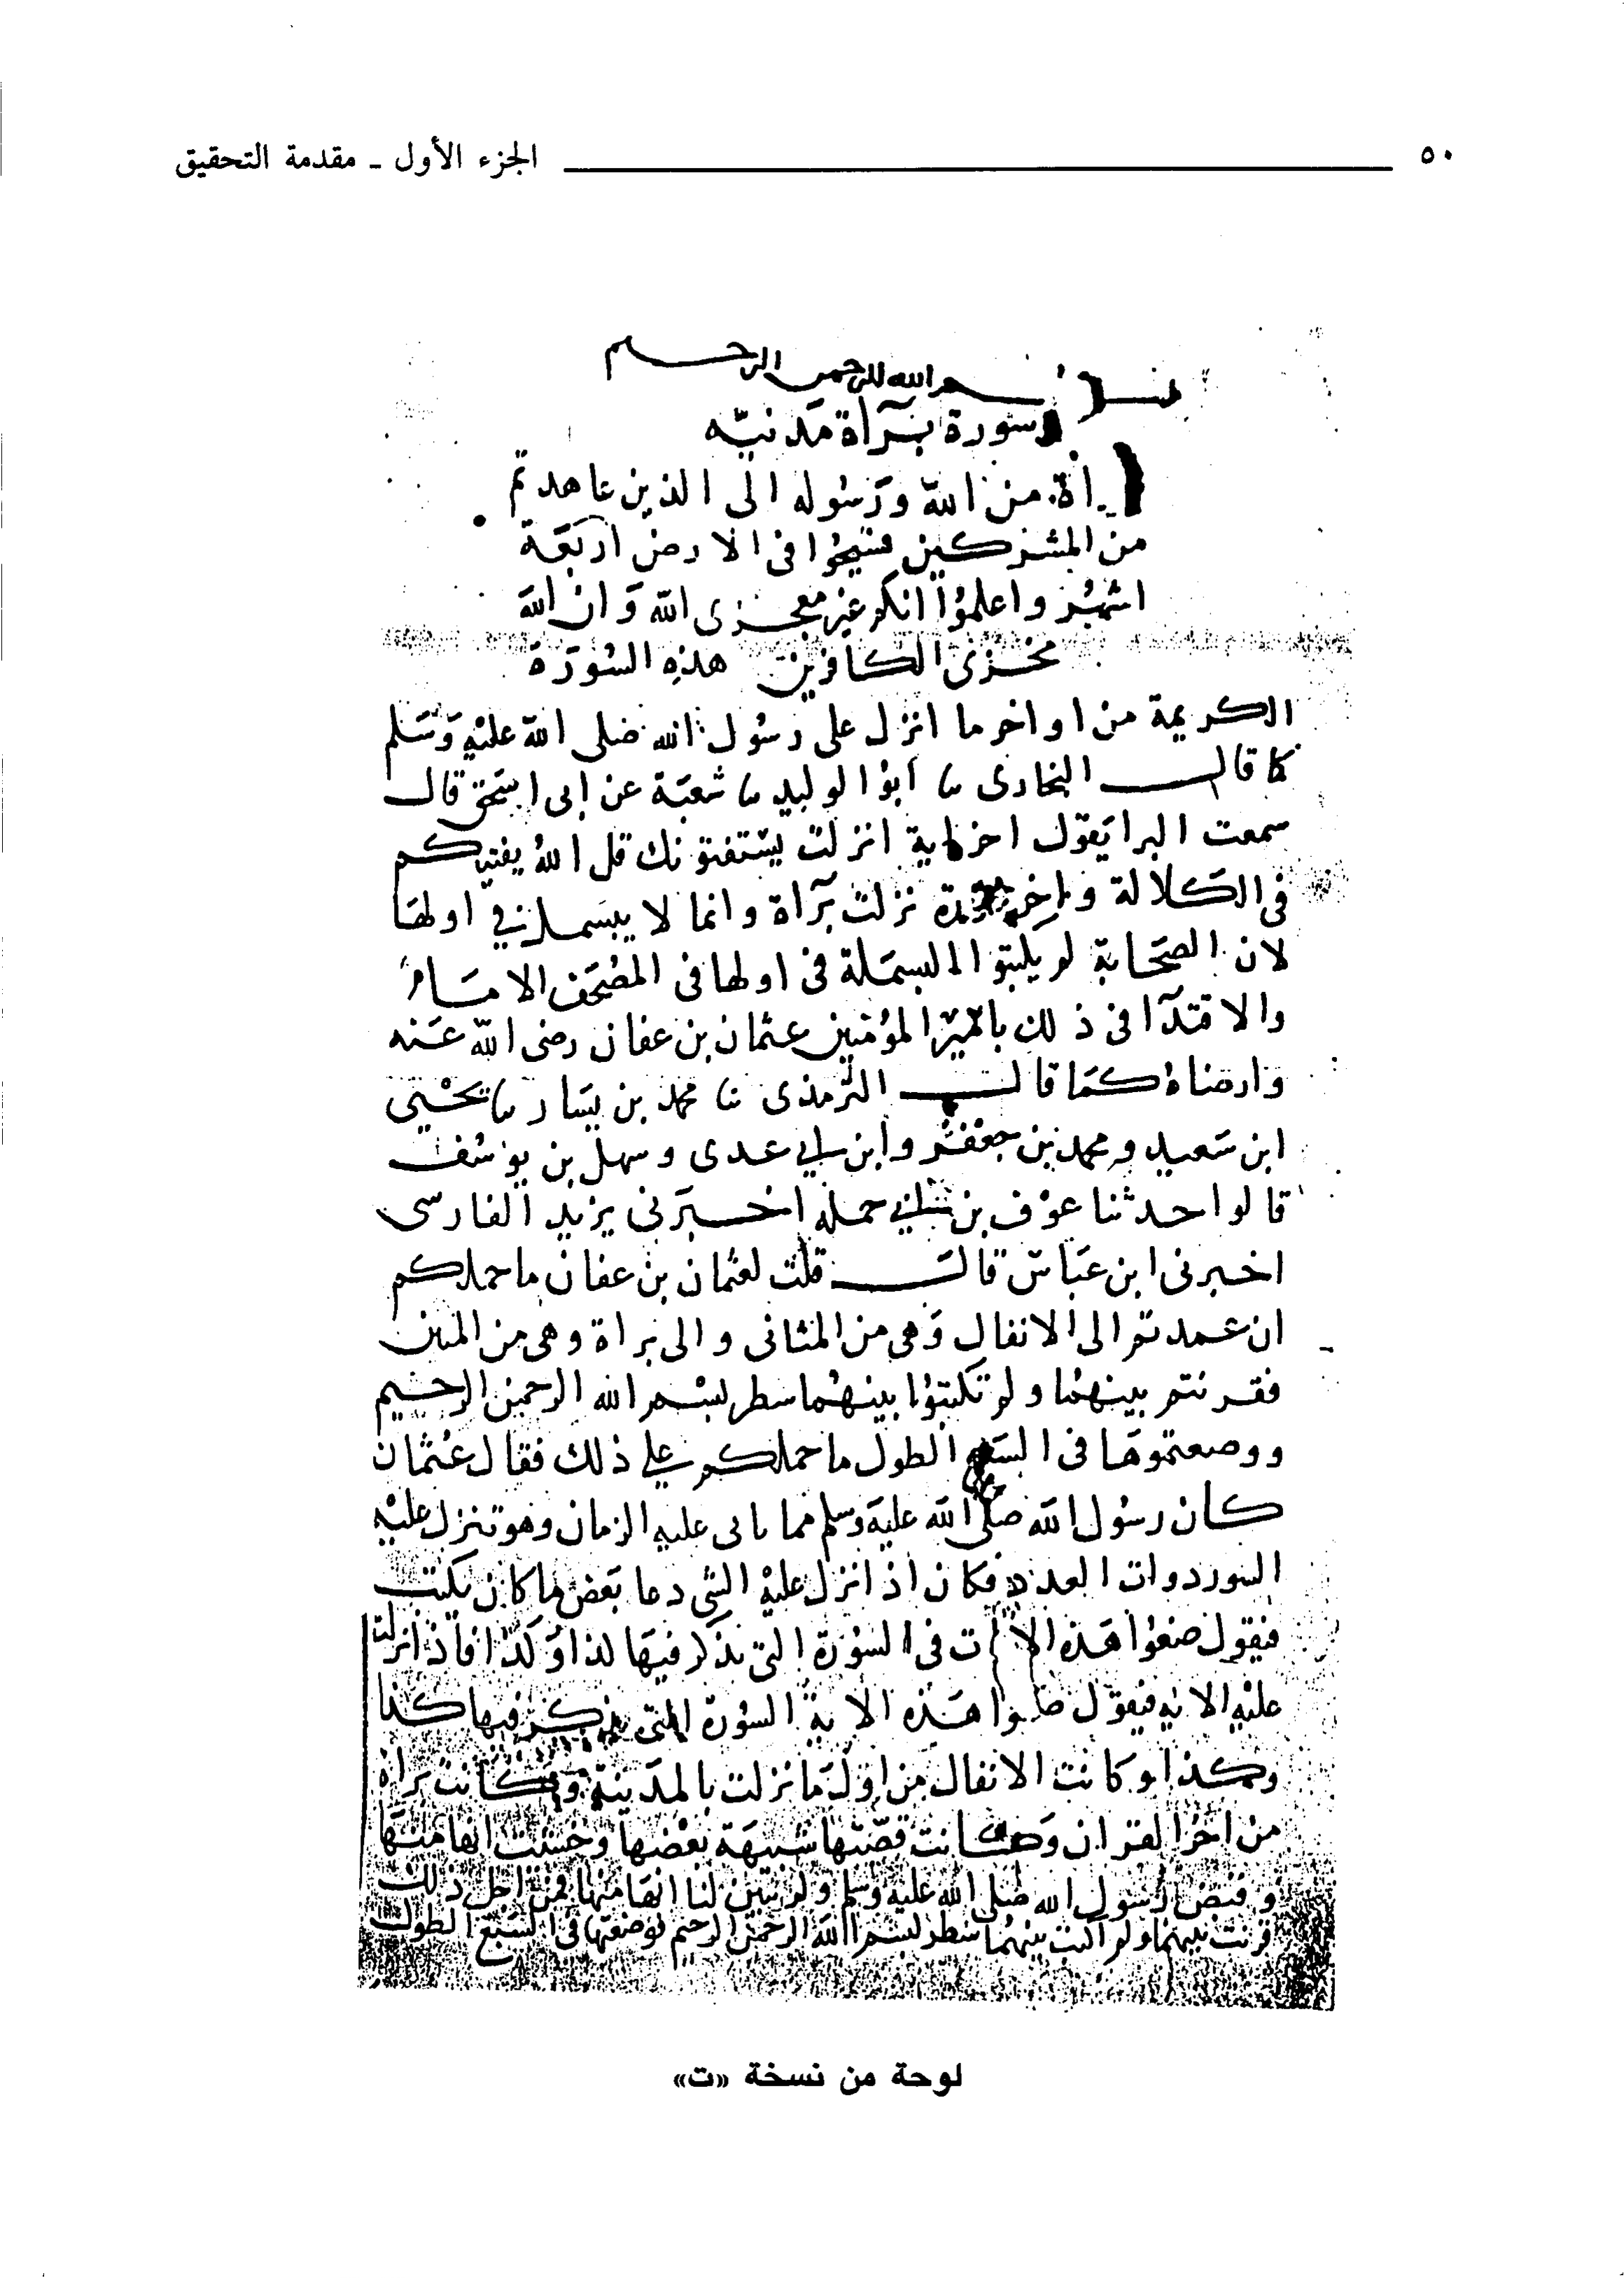 ٥٠ الجزء الأول ـ مقدمة التحقيق
بسم الله الرحمن الرحيم
سورة برآة مدنيّه
برأة من الله ورسوله الى الذين عاهدتم
من المشركين فسيحوا فى الارض اربعة
اشهر واعلموا انكم غير معجزى الله وان الله
مخزى الكافرين هذه السورة
الكريمة من اواخر ما انزل على رسول الله صلى الله عليه وسلم
كما قال البخارى ثنا ابو الوليد ثنا شعبة عن ابى اسحق قال
سمعت البرا يقول اخر اية انزلت يستفتونك قل الله يفتيكم
فى الكلالة واخر سورة نزلت برآاة وانما لا يبسمل فى اولها
لان الصحابة لم يكتبوا البسملة فى اولها فى المصحف الامام
والاقتدآ فى ذلك بامير المؤمنين عثمان بن عفان رضى الله عنه
وارضاه كما قال الترمذى ثنا محمد بن بشار ثنا يحيى
ابن سعيد ومحمد بن جعفر وابن ابي عدى وسهل بن يوسف
قالوا حدثنا عوف بن ابي جملة اخبرنى يزيد الفارسى
اخبرنى ابن عباس قال قلت لعثمان بن عفان ما حملكم
ان عمدتم الى الانفال وهى من المثانى والى براة وهى من المئين
فقرنتم بينهما ولم تكتبوا بينهما سطر بسم الله الرحمن الرحيم
ووضعتموها فى السبع الطول ما حملكم على ذلك فقال عثمان
كان رسول الله صلى الله عليه وسلم مما ياتى عليه الزمان وهو تنزل عليه
السور ذوات العدد فكان اذا نزل عليه الشى دعا بعض من كان يكتب
فيقول ضعوا هذه الايات فى السورة التى يذكر فيها كذا وكذا فاذا انزلت
عليه الايه فيقول ضعوا هذه الاية السورة التى يذكر فيها كذا
وكذا وكانت الانفال من اول ما نزلت بالمدينة وكانت براة
من اخر القران وكانت قصتها شبيهة بعضها وحسبت انها منها
وقبض رسول الله صلى الله عليه وسلم ولم يبين لنا انها منها فمن اجل ذلك
قرنت بينهما ولم اكتب بينهما سطر بسم الله الرحمن الرحيم فوضعتها فى السبع الطول
لوحة من نسخة «ت»